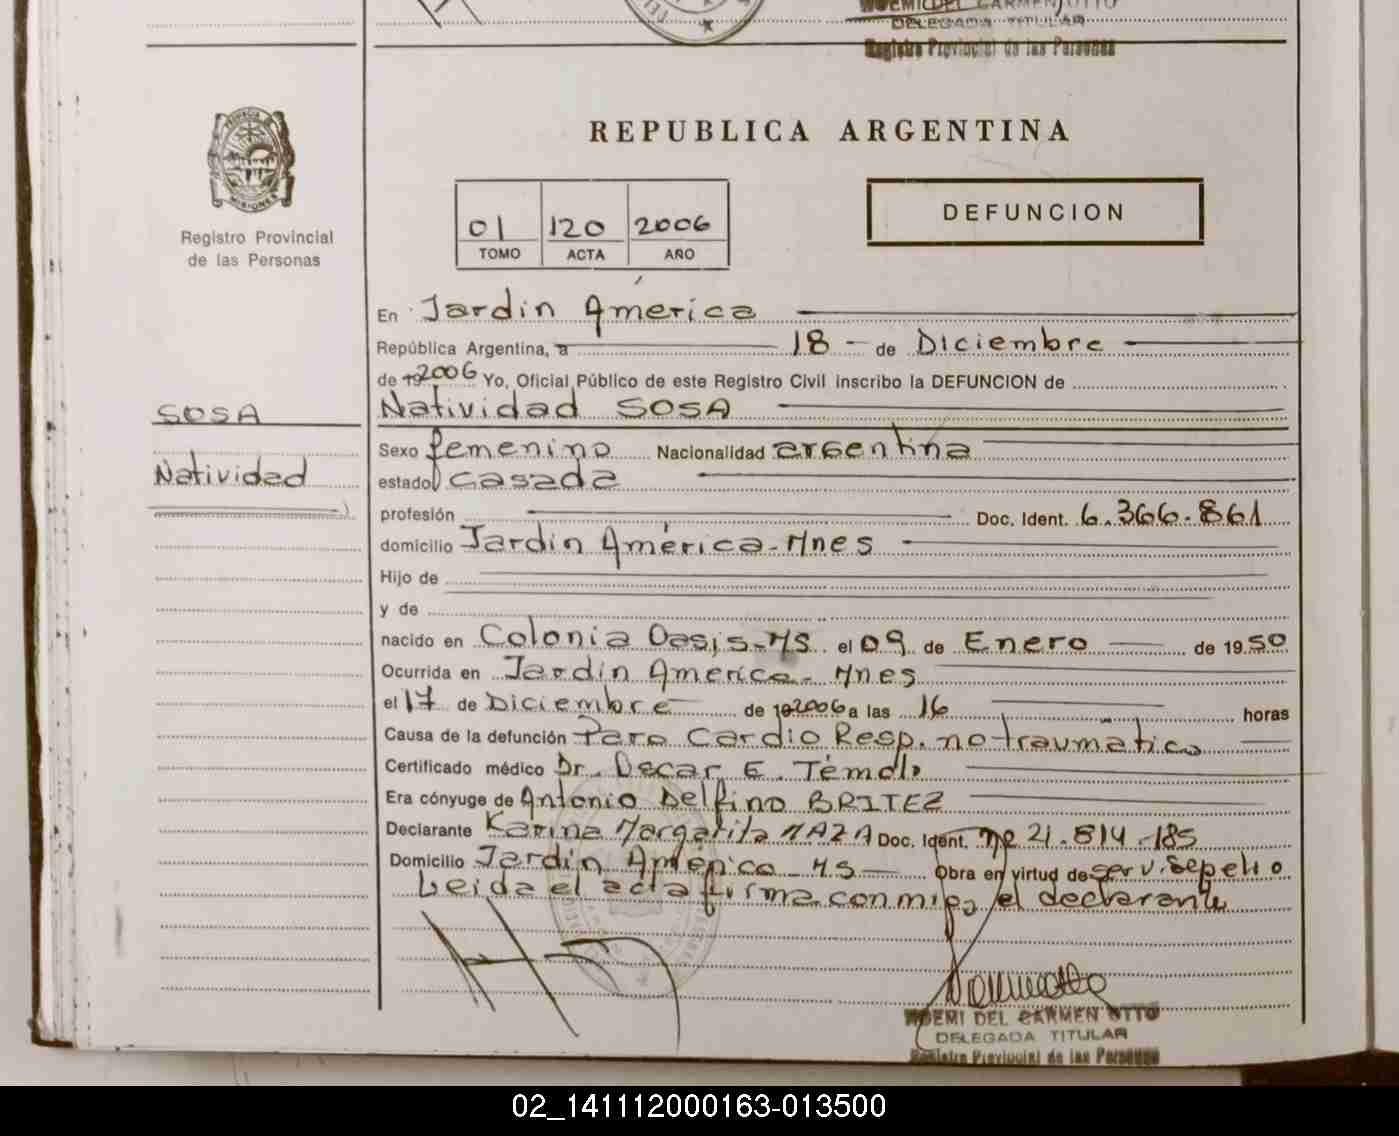 NOEMI DEL CARMEN OTTO
DELEGADA TITULAR
Registro Provincial de las Personas
PROVINCIA DE
MISIONES
Registro Provincial
de las Personas
REPUBLICA ARGENTINA
01 120 2006
TOMO ACTA AÑO
DEFUNCION
SOSA
Natividad
En Jardin América
República Argentina, a 18 - de Diciembre
de 19 2006 Yo, Oficial Público de este Registro Civil inscribo la DEFUNCION de
Natividad SOSA
Sexo femenino Nacionalidad argentina
estado casada
profesión Doc. Ident. 6.366.861
domicilio Jardin América-Mnes
Hijo de
y de
nacido en Colonia Oasis-MS el 09 de Enero de 1950
Ocurrida en Jardin America-Mnes
el 17 de Diciembre de 19 2006 a las 16 horas
Causa de la defunción Paro Cardio Resp. no traumatico
Certificado médico Dr. Oscar E. Témoli
Era cónyuge de Antonio Delfino BRITEZ
Declarante Karina Margarita MAZA Doc. Ident. Nº 21.814.185
Domicilio Jardin América-MS Obra en virtud de serv. sepelio
Leida el acta firma conmigo el declarante
NOEMI DEL CARMEN OTTO
DELEGADA TITULAR
Registro Provincial de las Personas
02_141112000163-013500